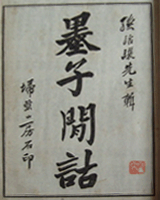 孫詒讓先生輯
墨子閒詁
埽葉山房石印